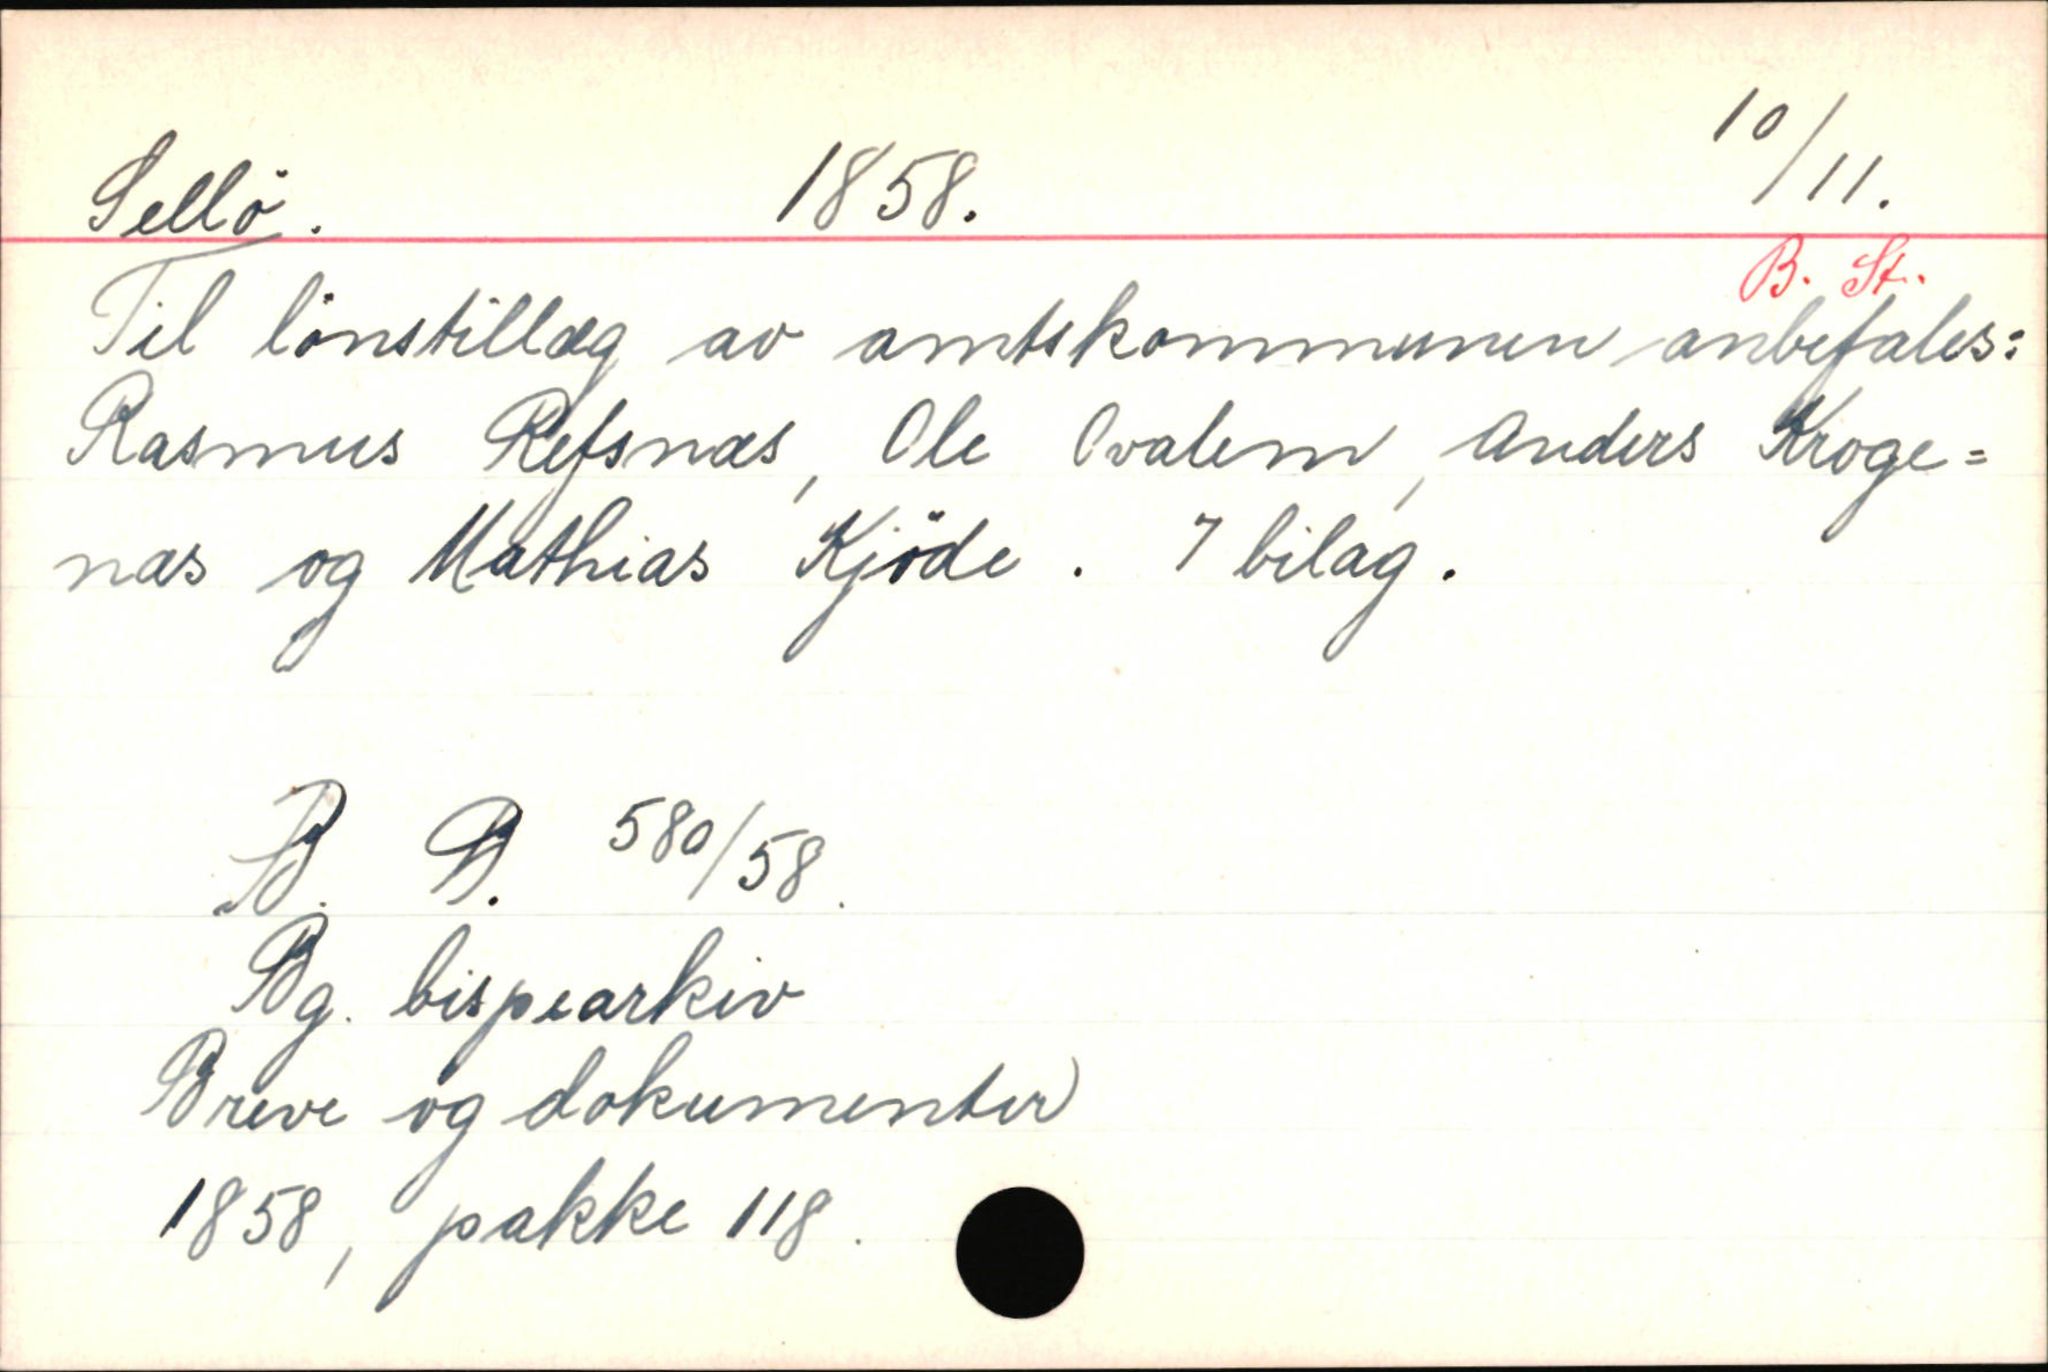 Sellö. 1858. 10/11.
B. St.
Til lönstillæg av amtskommunen anbefales:
Rasmus Refsnæs, Ole Ovalem, Anders Kroge=
næs og Mathias Kjöde. 7 bilag.
B. D. 580/58.
Bg. bispearkiv
Breve og dokumenter
1858, pakke 118.